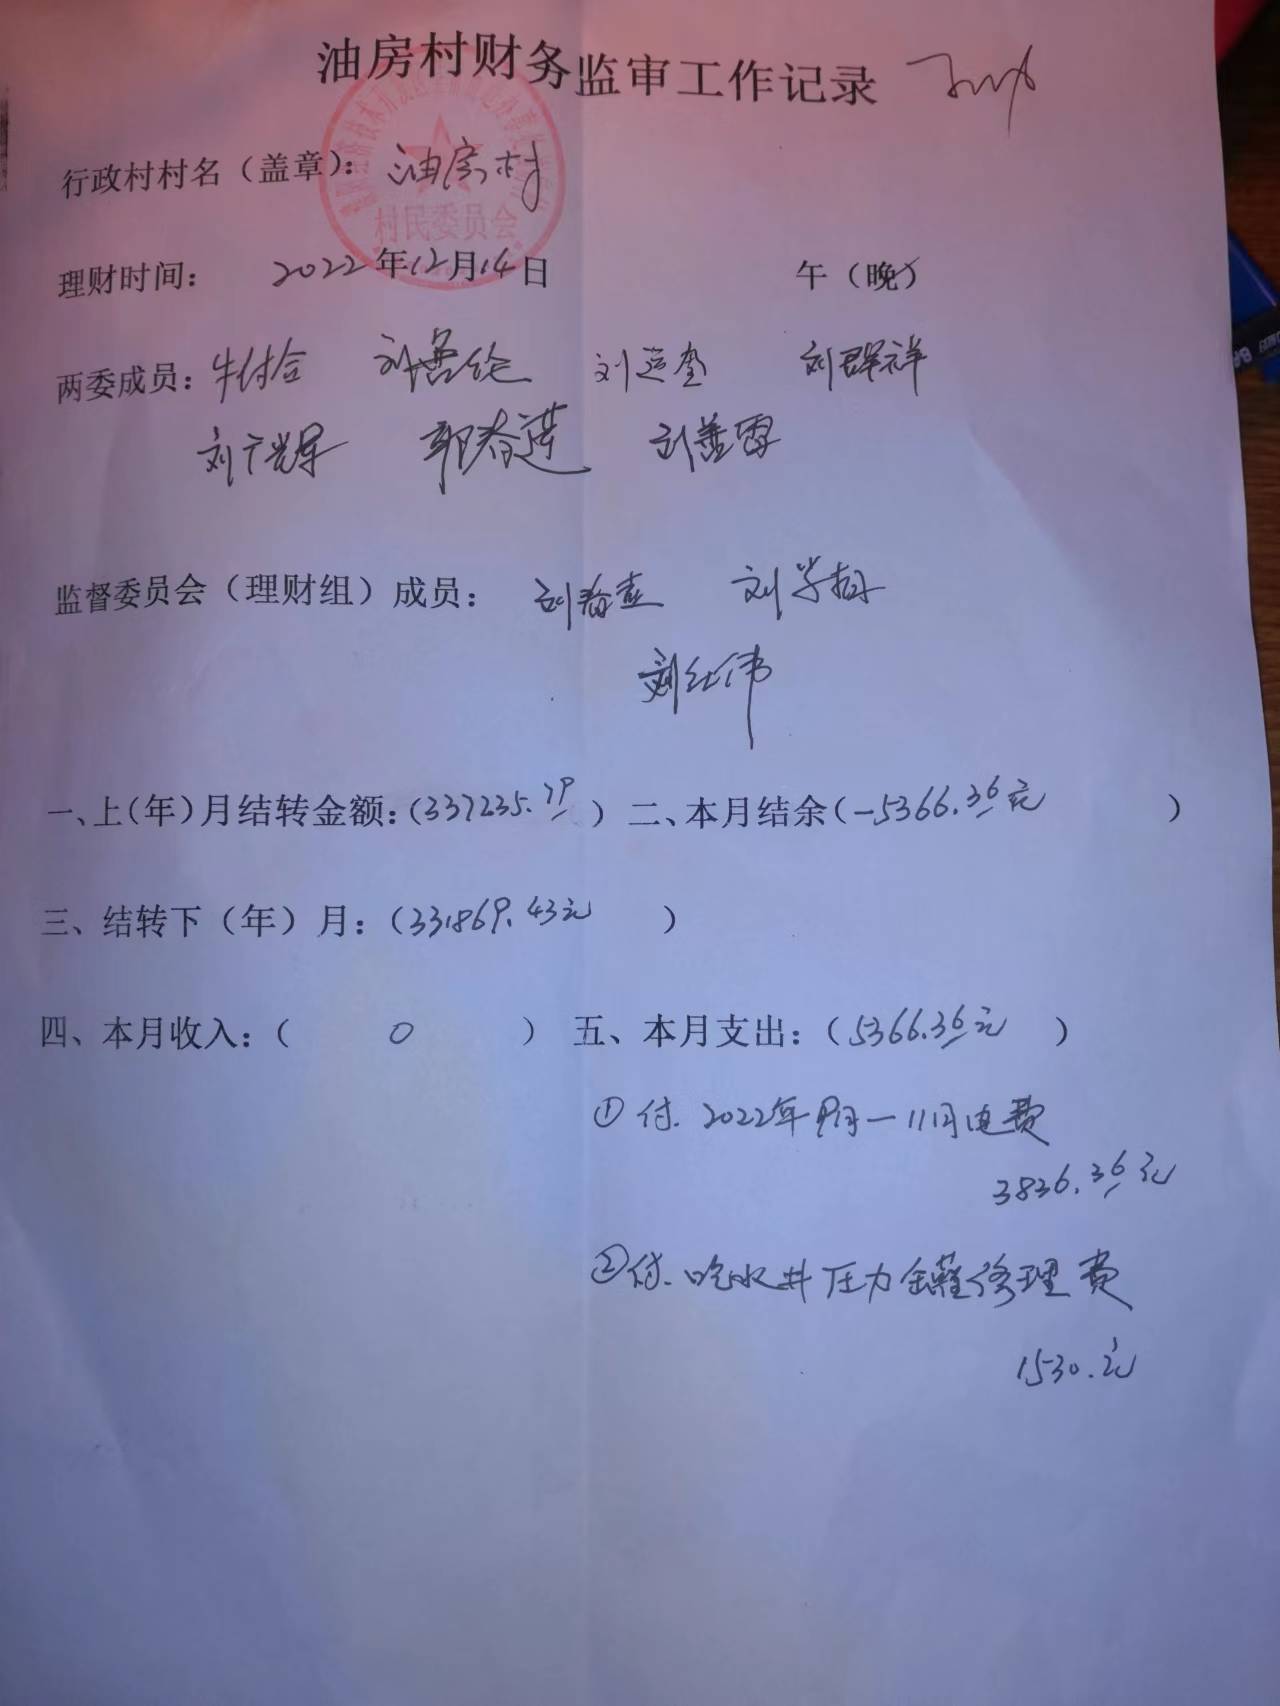 油房村财务监审工作记录
行政村村名（盖章）：油房村
村民委员会
理财时间： 2022年12月14日 午（晚）
两委成员：牛付合 刘善纶 刘运奎 刘群祥
刘广辉 郭春莲 刘善雷
监督委员会（理财组）成员： 刘春 刘学
刘红伟
一、上（年）月结转金额：（337235.79） 二、本月结余（-5366.36元 ）
三、结转下（年）月：（331869.43元 ）
四、本月收入：（ 0 ） 五、本月支出：（5366.36元 ）
①付.2022年9月-11月电费
3836.36元
②付.吃水井压力罐修理费
1530.元